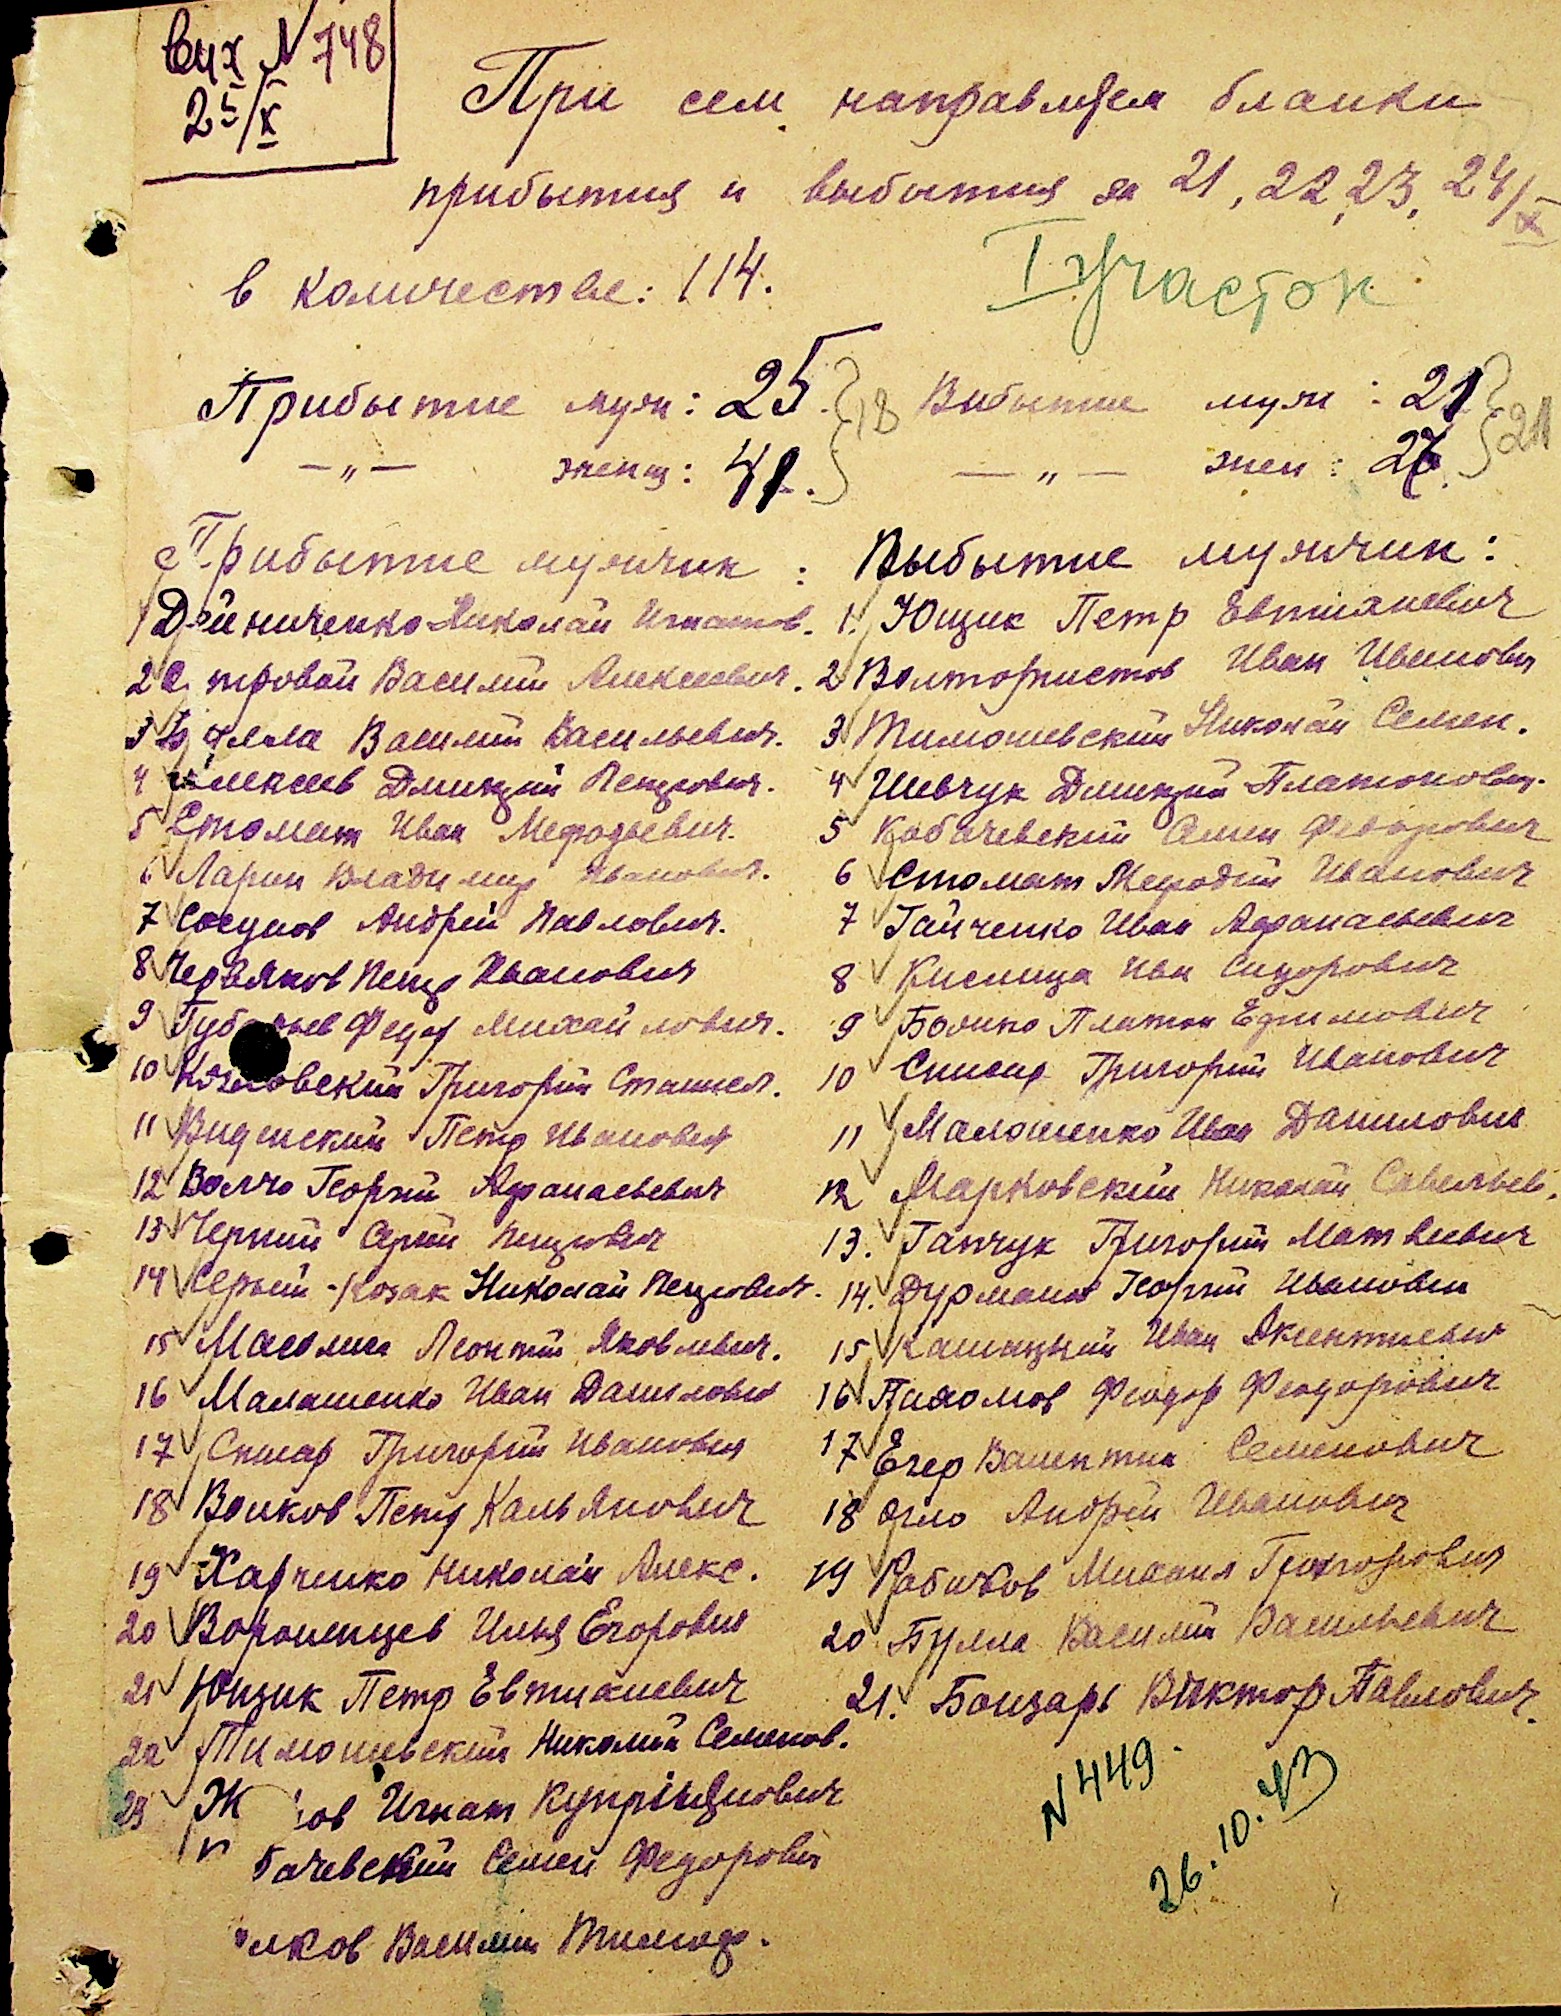 вих N 748
25/X
При сем направляем бланки
прибытия и выбытия за 21, 22, 23, 24/X
в количестве: 114.
I участок
Прибытие муж: 25
18
— „ — женщ: 41.
Выбытие муж: 21
21
— „ — жен: 27.
Прибытие мужчин:
1 Дейниченко Николай Игнатов.
2 тровой Василий Алексеевич.
3 Булла Василий Васильевич.
4 Алексеев Дмитрий Петрович.
5 Стомат Иван Мефодьевич.
6 Ларин Владимир Иванович.
7 Сосунов Андрей Павлович.
8 Червяков Петр Иванович
9 Федор Михайлович.
10 Козловский Григорий Станисл.
11 Видинский Петр Иванович
12 Волчо Георгий Афанасьевич
13 Черний Сергей Петрович
14 Серый-Козак Николай Петрович.
15 Леонтий Яковлевич.
16 Малашенко Иван Данилович
17 Спысар Григорий Иванович
18 Волков Петр
19 Харченко Николай Алекс.
20 Воронцев Илья Егорович
21 Ющик Петр Евтихиевич
22 Тимошевский Николай Семенов.
23 Ж ков Игнат Куприянович
бачевский Семен Федорович
лков Василий Тимоф.
Выбытие мужчин:
1. Ющик Петр Евтихиевич
2 Волторнистов Иван Иванович
3 Тимошевский Николай Семен.
4 Шевчук Дмитрий Платонович.
5 Кабачевский Семен Федорович
6 Стомат Мефодий Иванович
7 Гайченко Иван Афанасьевич
8 Кислица Иван Сидорович
9 Бойко Платон Ефимович
10 Спысар Григорий Иванович
11 Малошенко Иван Данилович
12 Марковский Николай Савельев.
13. Ганчук Григорий Матвеевич
14. Дурманов Георгий Иванович
15 Кашицкий Иван Аксентиевич
16 Пахомов Феодор Феодорович
17 Егер Валентин Семенович
18 Огло Андрей Иванович
19 Рабичков Михаил Григорович
20 Булла Василий Васильевич
21. Бонзарь Виктор Павлович.
N 449.
26.10.43